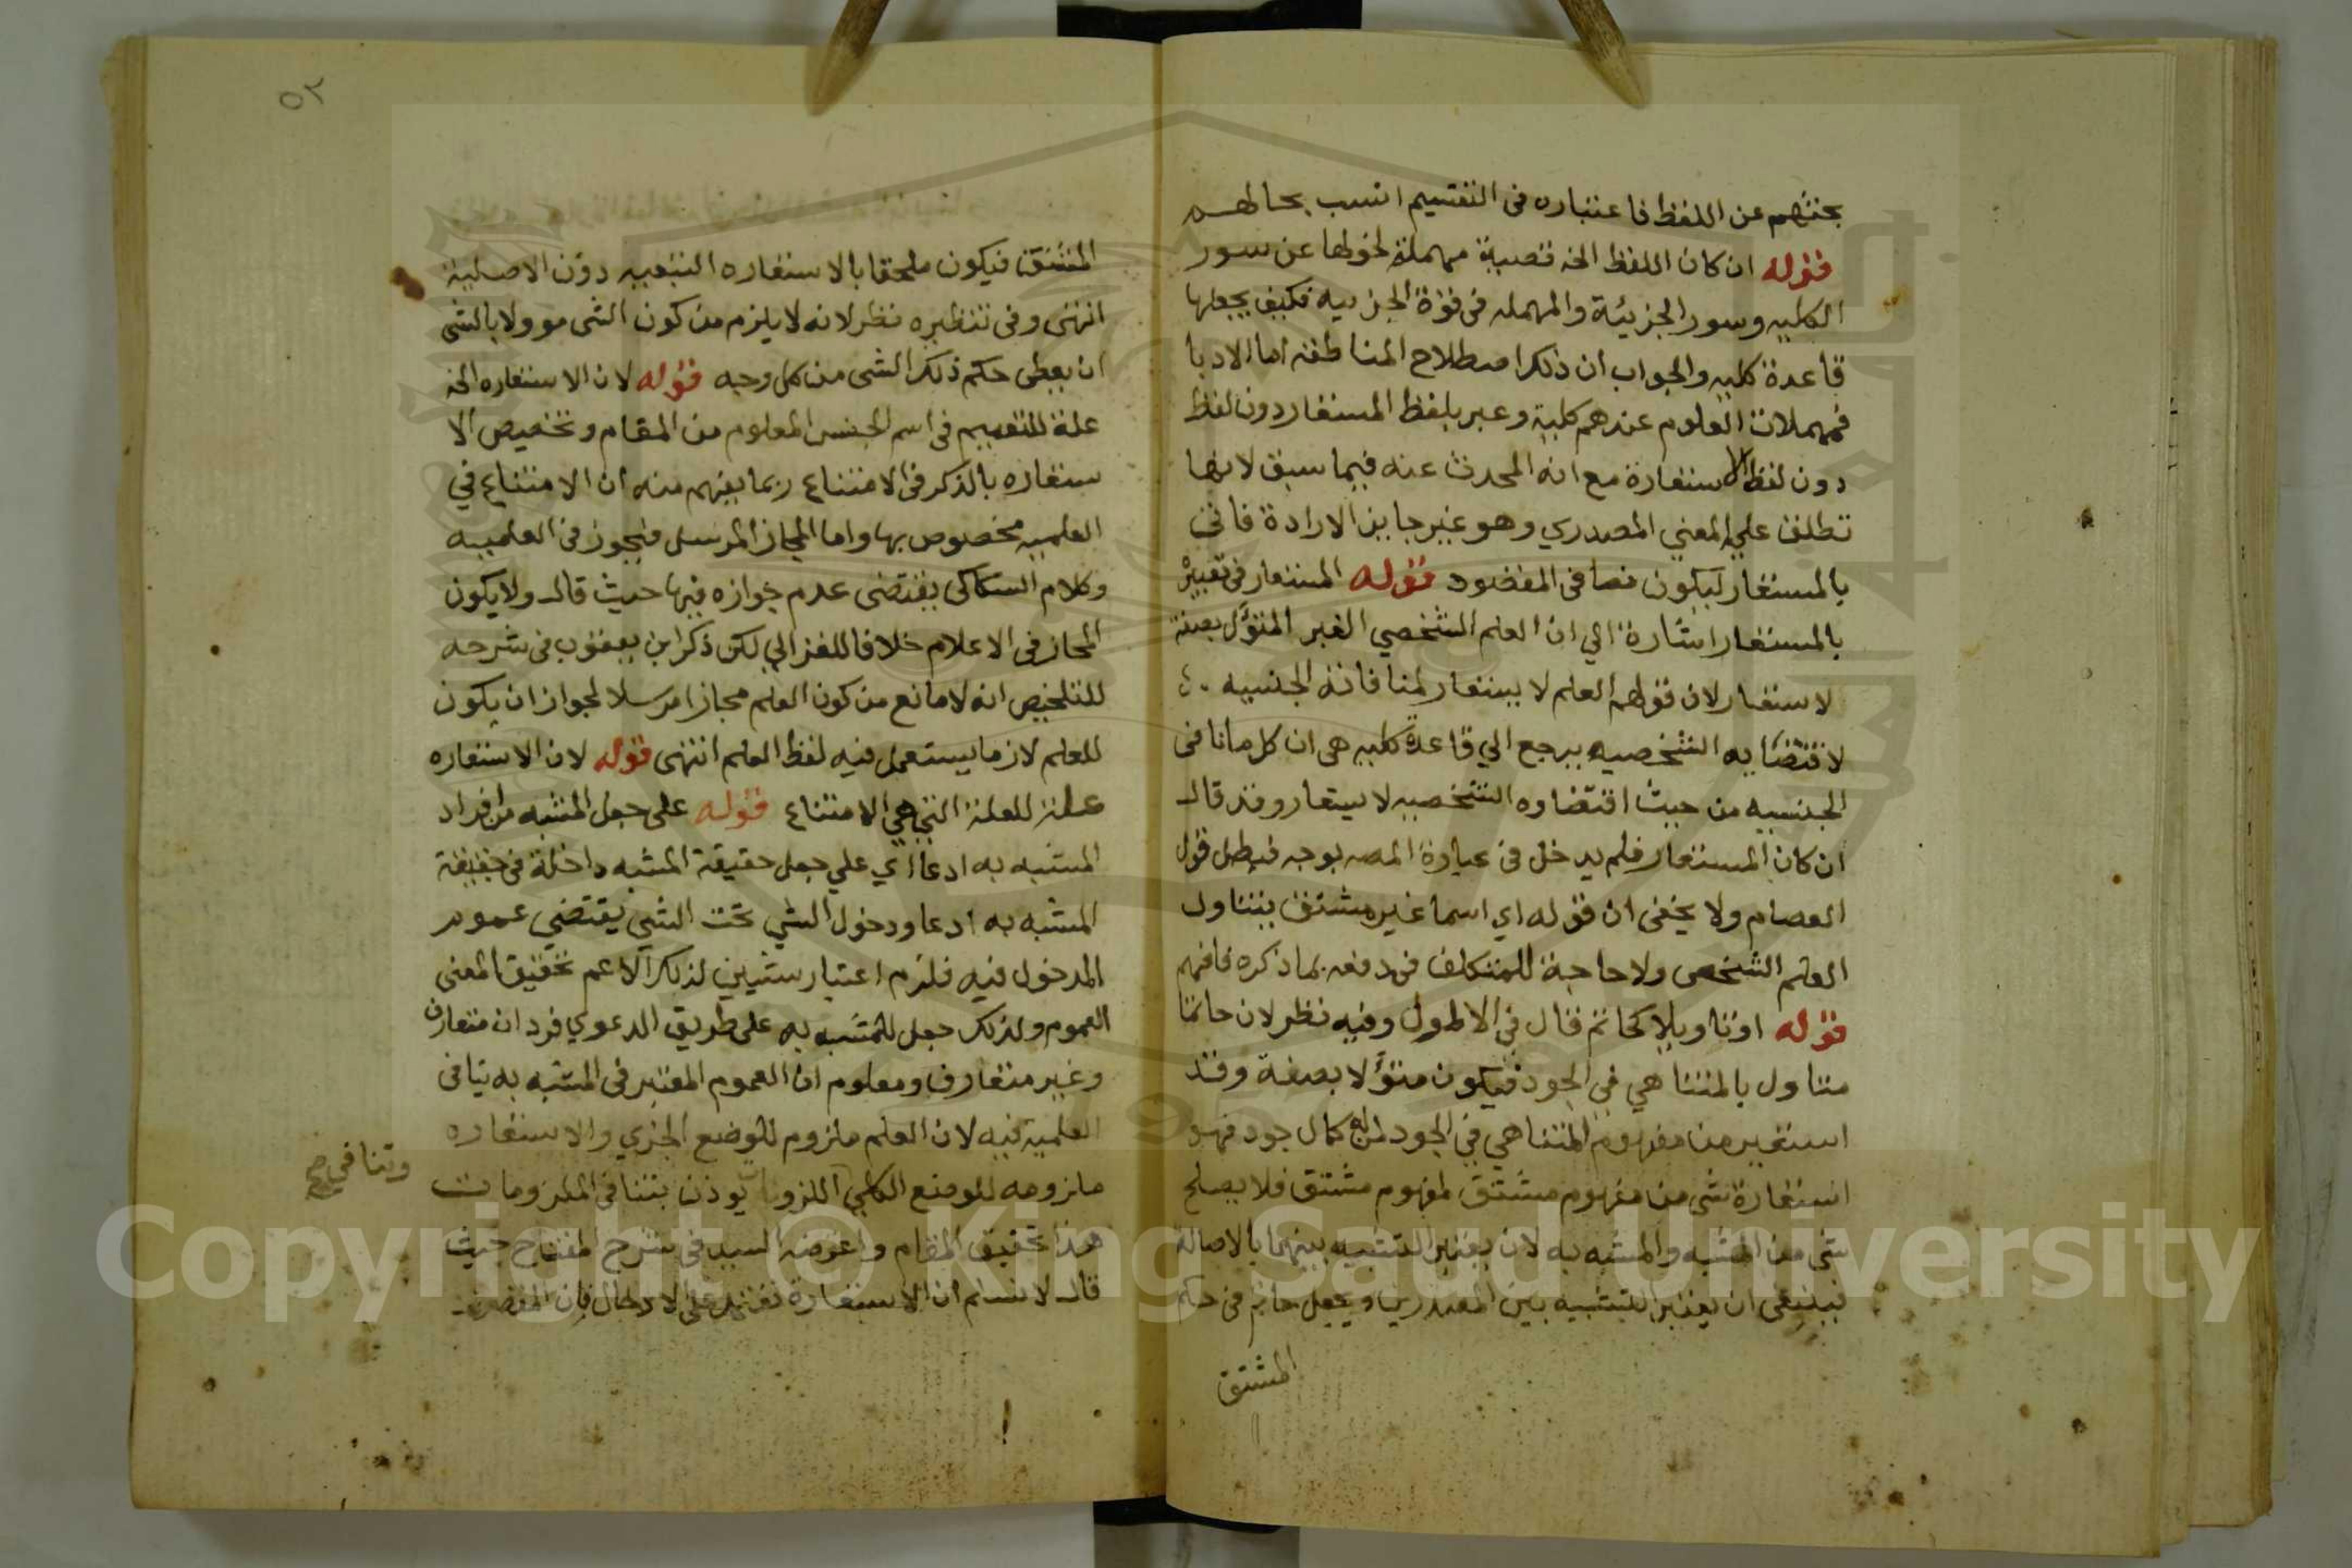 بحثهم عن اللفظ فاعتباره فى التقسيم انسب بحالهم
قوله ان كان اللفظ الخ قضية مهملة لخولها عن سور
الكليه وسور الجزيئة والمهمله فى قوة الجزييه فكيف يجعلها
قاعدة كليه والجواب ان ذلك اصطلاح المناطقه اما الادبا
فمهملات العلوم عندهم كلية وعبر بلفظ المستعار دون لفظ
دون لفظ الاستعارة مع انه المحدث عنه فيما سبق لانها
تطلق علي المعني المصدري وهو غير جايز الارادة فاتى
بالمستعار ليكون نصا فى المقصود قوله المستعار فى تعبيره
بالمستعار اشارة الي ان العلم الشخصي الغير المتؤل بصفة
لا ستعار لان قولهم العلم لا يستعار لمنافاته الجنسيه
لاقتضايه التشخصيه يرجع الي قاعدة كليه هى ان كل ما نافى
الجنسيه من حيث اقتضاوه التشخصيه لا يستعار وقد قال
ان كان المستعار فلم يدخل فى عبارة المصه بوجه فبطل قول
العصام ولا يخفى ان قوله اي اسما غير مشتق يتناول
العلم الشخصى ولا حاجة للمتكلف فى دفعه بما ذكره فافهم
قوله اوتاويلا كحاتم قال في الاطول وفيه نظر لان حاتما
متاول بالمتناهي في الجود فيكون متؤلا بصفة وقد
استعير من مفهوم المتناهي في الجود لمن له كمال جود فهو
استعارة شى من مفهوم مشتق لمفهوم مشتق فلا يصلح
شى من المشبه والمشبه به لان يعتبر التشبيه بينهما بالاصالة
فينبغى ان يعتبر التشبيه بين المصدرين ويجعل حاتم فى حكم
المشتق
٥٢
المشتق فيكون ملحقا بالاستعاره التبعيه دون الاصلية
انتهى وفى تنظيره نظر لانه لا يلزم من كون الشى موولا بالشى
ان يعطى حكم ذلك الشى من كل وجه قوله لان الاستعاره الخ
علة للتعميم فى اسم الجنس المعلوم من المقام وتخصيص الا
ستعاره بالذكر فى الامتناع ربما يفهم منه ان الامتناع في
العلميه مخصوص بها واما المجاز المرسل فيجوز فى العلمييه
وكلام السكاكى يقتضى عدم جوازه فيها حيث قال ولا يكون
المجاز فى الاعلام خلافا للغزالي لكن ذكر ابن يعقوب فى شرحه
للتلخيص انه لا مانع من كون العلم مجازا مرسلا لجواز ان يكون
للعلم لازما يستعمل فيه لفظ العلم انتهى قوله لان الاستعاره
علة للعلة التي هي الامتناع قوله على جعل المشبه من افراد
المشبه به ادعا اي علي جعل حقيقة المشبه داخلة فى حقيقة
المشبه به ادعا ودخول الشي تحت الشى يقتضي عموم
المدخول فيه فلزم اعتبار ستيين لذلك الاعم تحقيق المعنى
العموم ولذلك جعل للمشبه به على طريق الدعوي فردان متعارف
وغير متعارف ومعلوم ان العموم المعتبر فى المشبه به ينافى
العلمية فيه لان العلم ملزوم للوضع الجزي والاستعاره
ملزومه للوضع الكلي اللزوما يوذن بتنافى الملزومات
وتنافي صح
هذا تحقيق المقام واعرضه السيد فى شرح المفتاح حيث
قال لا نسلم ان الاستعارة تعتمد على الادخال فان المقصود